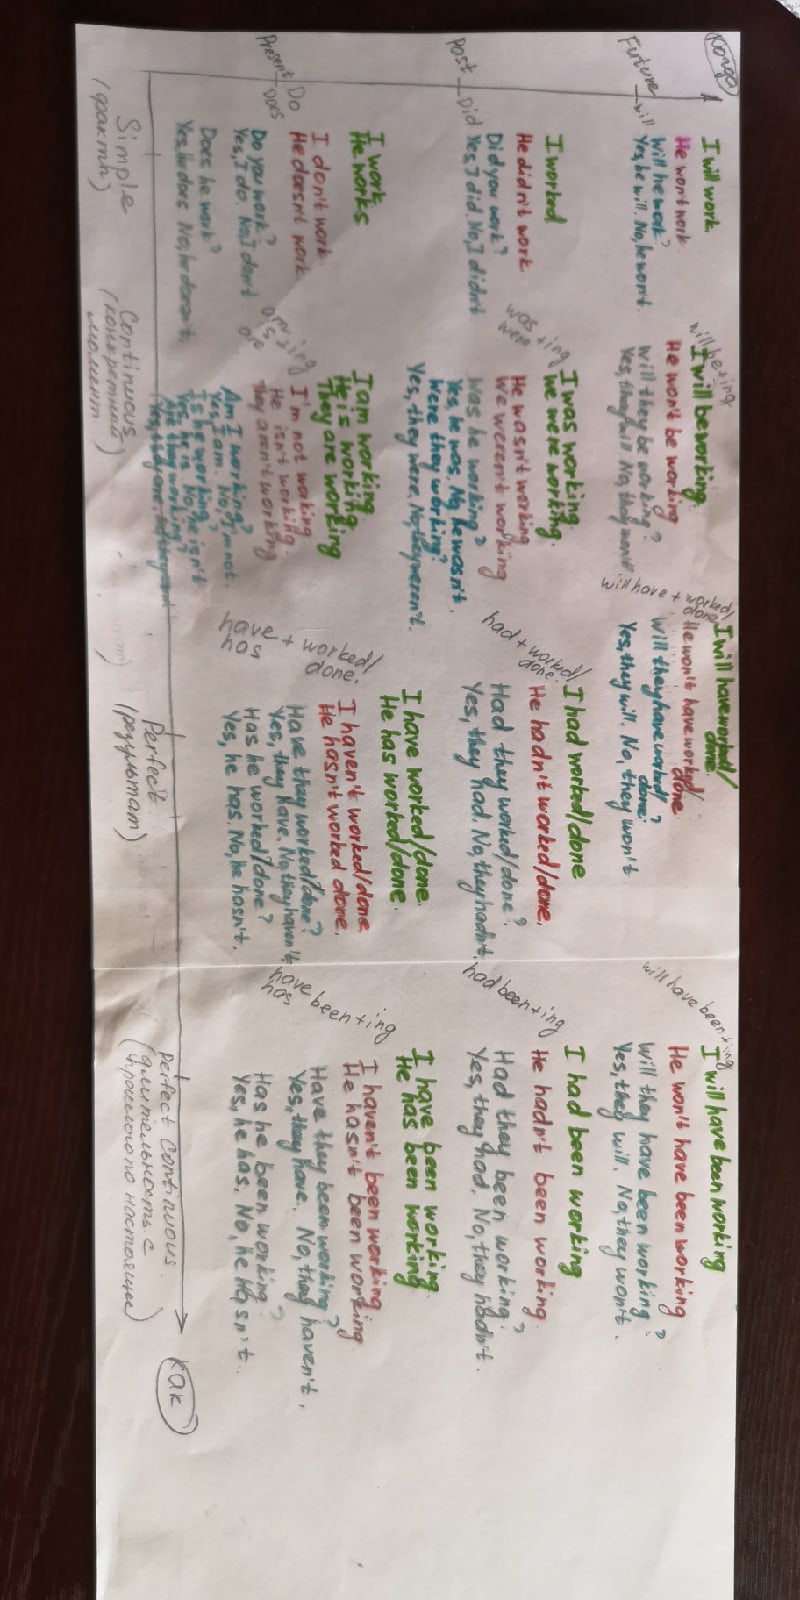 Когда
Future
will
I will work.
He won't work.
Will he work?
Yes, he will. No, he won't.
will be + ing
I will be working.
He won't be working
Will they be working?
Yes, they will. No, they won't
will have + worked/
done
I will have worked/
done.
He won't have worked/
done
Will they have worked/ ?
done.
Yes, they will. No, they won't
will have been + ing
I will have been working
He won't have been working
Will they have been working?
Yes, they will. No, they won't.
Past
Did
I worked
He didn't work
Did you work?
Yes, I did. No, I didn't
was + ing
were
I was working.
We were working.
He wasn't working
We weren't working
Was he working?
Yes, he was. No, he wasn't.
Were they working?
Yes, they were. No, they weren't.
had + worked/
done.
I had worked/done
He hadn't worked/done.
Had they worked/done?
Yes, they had. No, they hadn't.
had been + ing
I had been working
He hadn't been working.
Had they been working?
Yes, they had. No, they hadn't.
Present
Do
Does
I work.
He works
I don't work.
He doesn't work
Do you work?
Yes, I do. No, I don't.
Does he work?
Yes, he does. No, he doesn't.
am
is + ing
are
I am working.
He is working.
They are working
I'm not working.
He isn't working.
They aren't working
Am I working?
Yes, I am. No, I'm not.
Is he working?
Yes, he is No, he isn't
Are they working?
Yes, they are.
have + worked/
has done.
I have worked/done.
He has worked/done.
I haven't worked/done
He hasn't worked done.
Have they worked/done?
Yes, they have. No, they haven't
Has he worked/done?
Yes, he has. No, he hasn't.
have been + ing
has
I have been working.
He has been working
I haven't been working.
He hasn't been working.
Have they been working?
Yes, they have. No, they haven't.
Has he been working?
Yes, he has. No, he hasn't.
Как
Simple
(факты)
Continuous
(конкретный
момент)
Perfect
(результат)
Perfect Continuous
(длительность с
прошлого по настоящее)